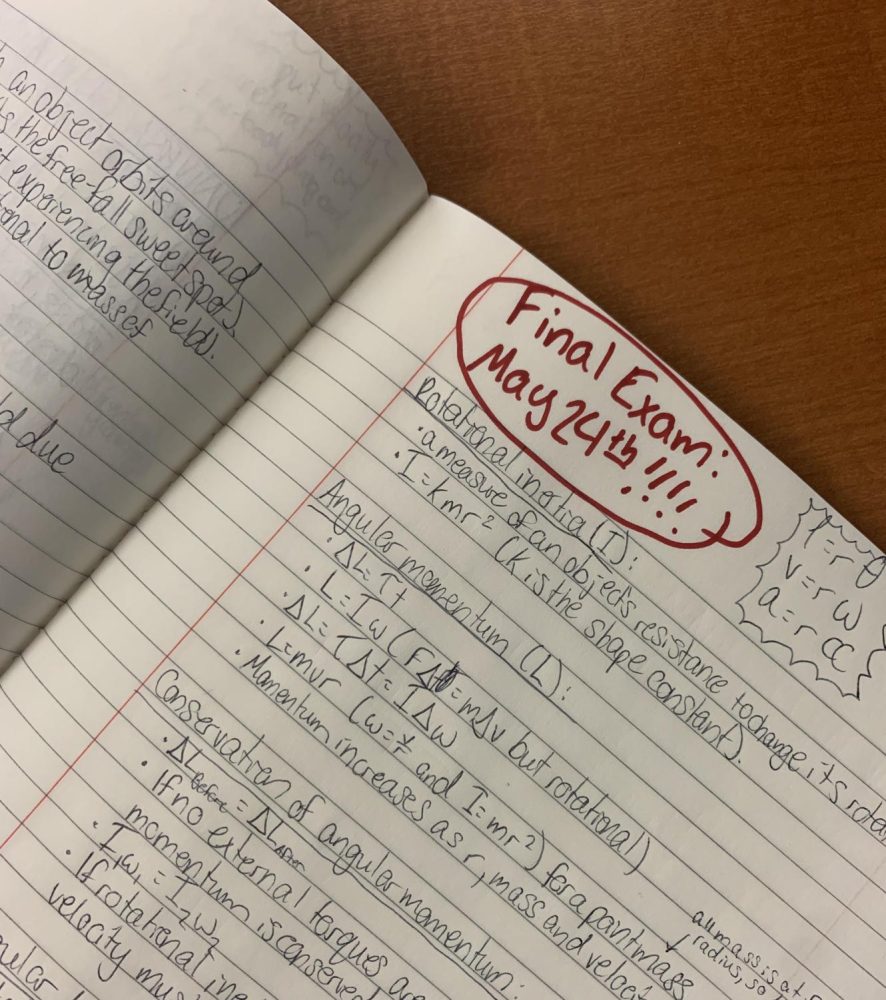 an object orbits around
the free-fall sweet spot).
experiencing the field).
to masses
due
Final Exam:
May 24th!!!!
Rotational inertia (I):
• a measure of an objects resistance to change its
• I = kmr² (K is the shape constant).
Angular momentum (L):
• ΔL = τt
• L = Iω (FΔt = mΔv but rotational)
• ΔL = τΔt = IΔω
• L = mvr (ω = v/r and I = mr²) for a point mass
• Momentum increases as r, mass and
all mass is at
radius, so
Conservation of angular momentum:
• ΔL Before = ΔL After
• If no external torques
momentum is conserved
• I₁ω₁ = I₂ω₂
• If rotational
velocity
l = rθ
v = rω
a = rα